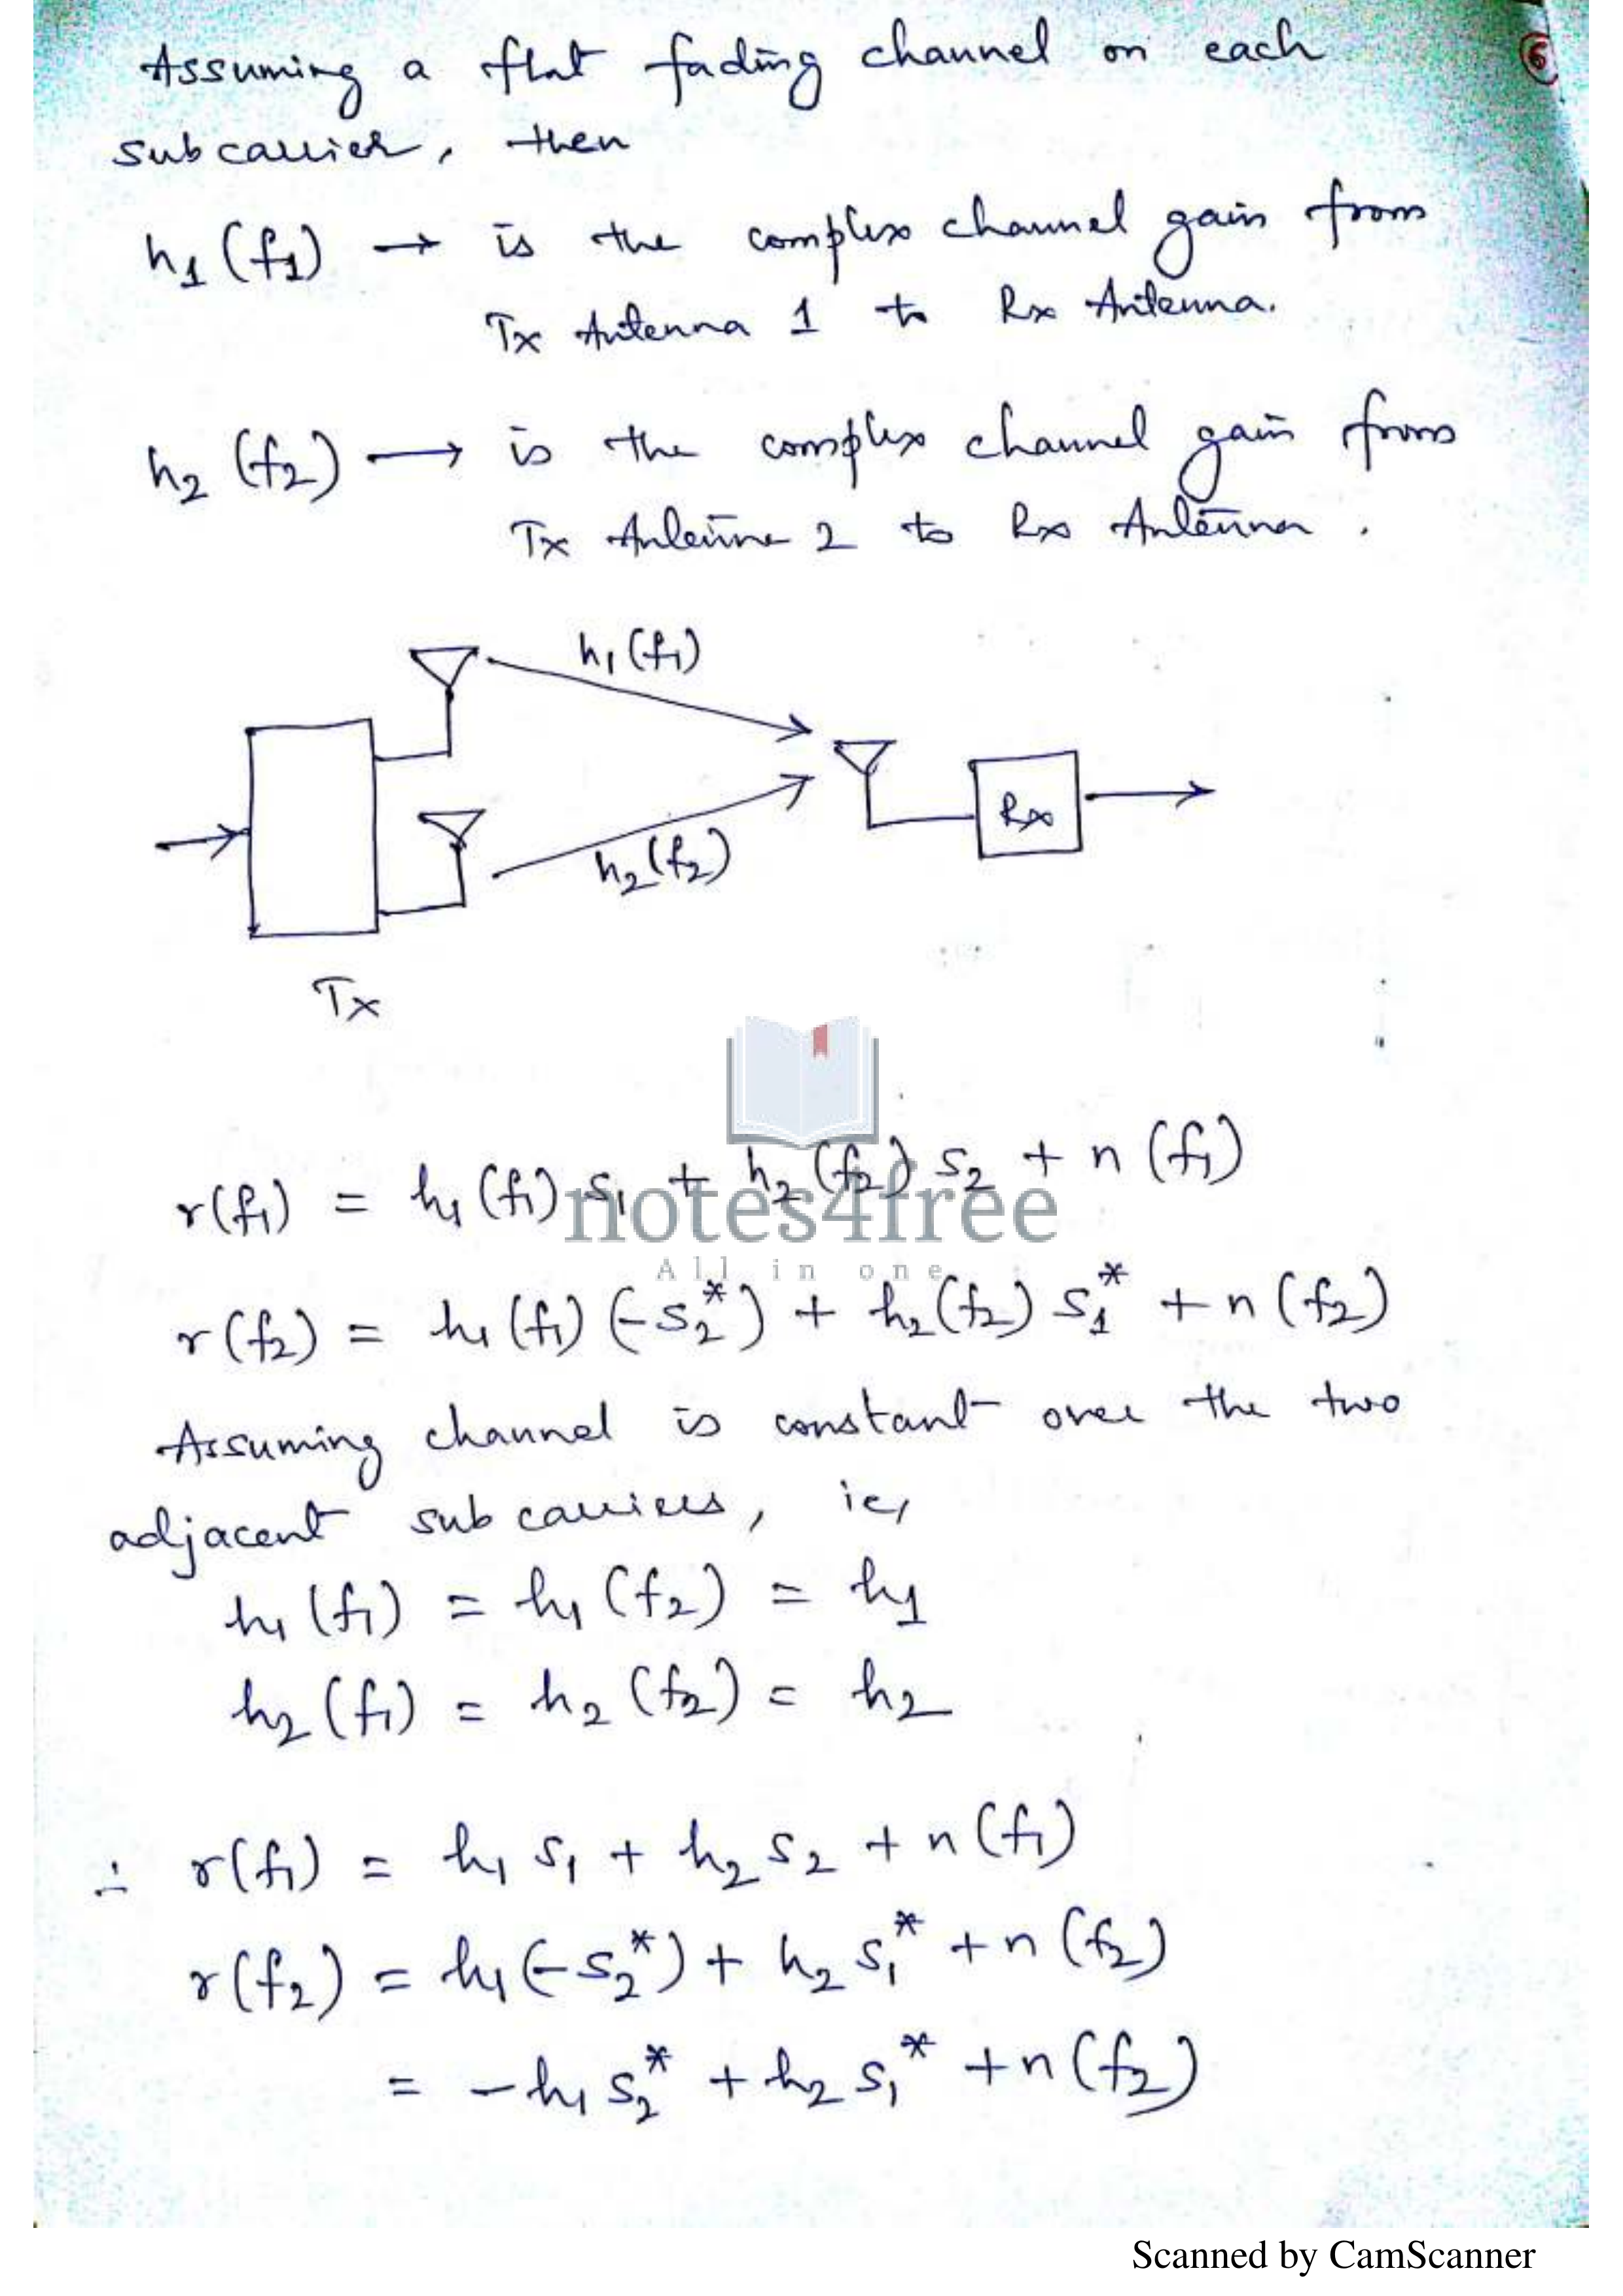 6
Assuming a flat fading channel on each
subcarrier, then
h₁ (f₁) → is the complex channel gain from
Tx Antenna 1 to Rx Antenna.
h₂ (f₂) → is the complex channel gain from
Tx Antenna 2 to Rx Antenna.
h₁(f₁)
Rx
h₂(f₂)
Tx
r(f₁) = h₁(f₁) s₁ + h₂(f₂) s₂ + n(f₁)
notes4free
All in one
r(f₂) = h₁(f₁) (-s₂*) + h₂(f₂) s₁* + n(f₂)
Assuming channel is constant over the two
adjacent subcarriers, ie,
h₁(f₁) = h₁(f₂) = h₁
h₂(f₁) = h₂(f₂) = h₂
∴ r(f₁) = h₁ s₁ + h₂ s₂ + n(f₁)
r(f₂) = h₁(-s₂*) + h₂ s₁* + n(f₂)
= -h₁ s₂* + h₂ s₁* + n(f₂)
Scanned by CamScanner